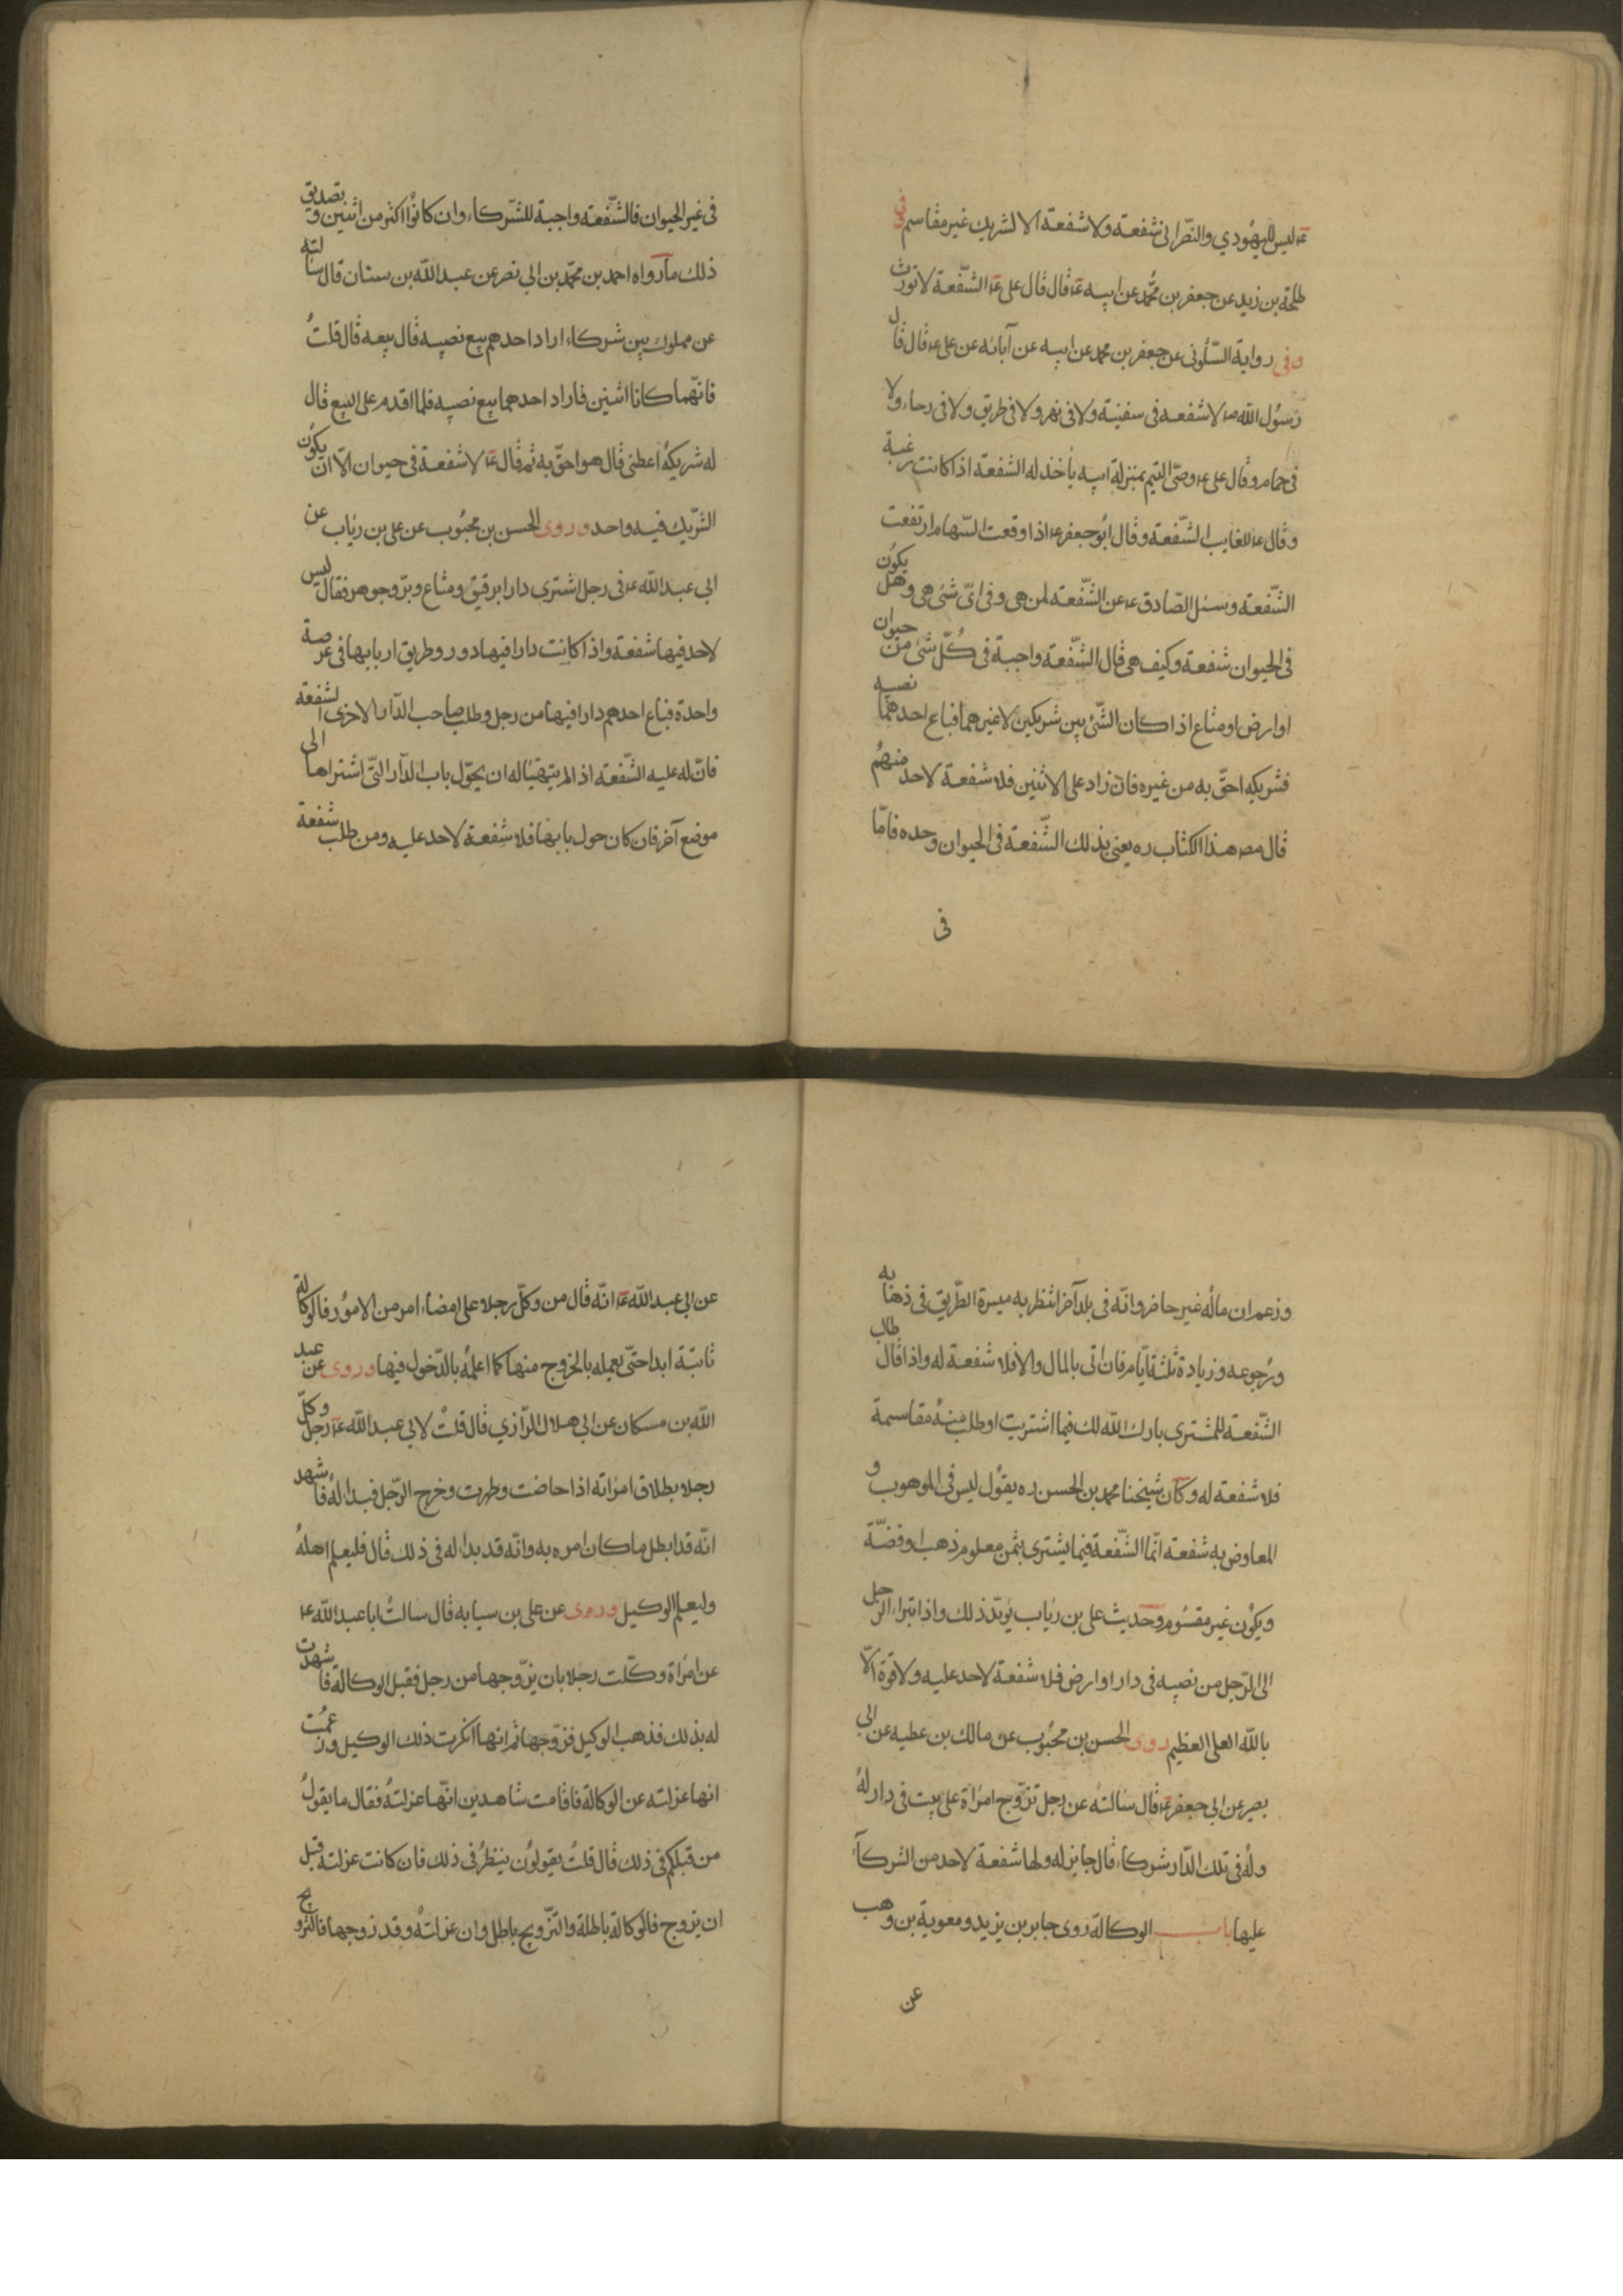 ع ليس لليهودي والنصراني شفعة ولا شفعة الا لشريك غير مقاسم وفي
طلحة بن زيد عن جعفر بن محمد عن ابيه ع قال قال علي ع الشفعة لا تورث
وفي رواية السكوني عن جعفر بن محمد عن ابيه عن آبائه عن علي ع قال قال
رسول الله ص لا شفعه في سفينة ولا في نهر ولا في طريق ولا في رحاء ولا
في حمام وقال علي ع وصي اليتيم بمنزلة ابيه يأخذ له الشفعة اذا كانت رغبة
وقال ع للغايب الشفعة وقال ابو جعفر ع اذا وقعت السهام ارتفعت
الشفعة وسئل الصادق ع عن الشفعة لمن هي وفي اي شئ هي وهل يكون
في الحيوان شفعة وكيف هي قال الشفعة واجبة في كل شئ من حيوان
او ارض او متاع اذا كان الشئ بين شريكين لا غيرهما فباع احدهما نصيبه
فشريكه احق به من غيره فان زاد على الاثنين فلا شفعة لاحد منهم
قال مص هذا الكتاب ره يعني بذلك الشفعة في الحيوان وحده فامّا
في
في غير الحيوان فالشفعة واجبة للشركاء وان كانوا اكثر من اثنين وتصديق
ذلك ما رواه احمد بن محمد بن ابي نصر عن عبد الله بن سنان قال سالته
عن مملوك بين شركاء اراد احدهم بيع نصيبه قال يبيعه قال قلت
فانهما كانا اثنين فاراد احدهما بيع نصيبه فلما اقدم على البيع قال
له شريكه اعطني قال هو احق به ثم قال ع لا شفعة في حيوان الّا ان يكون
الشريك فيه واحد وروى الحسن بن محبوب عن علي بن رئاب عن
ابي عبد الله ع في رجل اشترى دارا برقيق ومتاع وبزّ وجوهر فقال ليس
لاحد فيها شفعة واذا كانت دارا فيها دور وطريق اربابها في عرصة
واحدة فباع احدهم دارا فيها من رجل وطلب صاحب الدار الاخرى الشفعة
فان له عليه الشفعة اذا لم يتهيّا له ان يحوّل باب الدار التي اشتراها الى
موضع آخر فان كان حول بابها فلا شفعة لاحد عليه ومن طلب شفعة
وزعم ان ماله غير حاضر وانه في بلد آخر انتظر به ميسرة الطريق في ذهابه
ورجوعه وزيادة ثلثة ايام فان اتى بالمال والا فلا شفعة له واذا قال طالب
الشفعة للمشتري بارك الله لك فيما اشتريت او طلب منه مقاسمة
فلا شفعة له وكان شيخنا محمد بن الحسن ره يقول ليس في الموهوب و
المعاوض به شفعة انما الشفعة فيما يشترى بثمن معلوم ذهب او فضة
ويكون غير مقسوم وحديث علي بن رئاب يؤيد ذلك واذا تبراء الرجل
الى الرجل من نصيبه في دار او ارض فلا شفعة لاحد عليه ولا قوة الا
بالله العلي العظيم روى الحسن بن محبوب عن مالك بن عطيه عن ابي
بصير عن ابي جعفر ع قال سالته عن رجل تزوج امراة على بيت في دار له
وله في تلك الدار شركاء قال جايز له ولها شفعة لاحد من الشركآء
عليها باب الوكالة روى جابر بن يزيد ومعوية بن وهب
عن
عن ابي عبد الله ع انه قال من وكل رجلا على امضاء امر من الامور فالوكالة
ثابتة ابدا حتى يعمله بالخروج منها كما اعلمه بالدخول فيها وروى عن عبد
الله بن مسكان عن ابي هلال الرازي قال قلت لابي عبد الله ع رجل وكل
رجلا بطلاق امراته اذا حاضت وطهرت وخرج الرجل فبدا له فاشهد
انه قد ابطل ما كان امره به وانه قد بدا له في ذلك قال فليعلم اهله
وليعلم الوكيل وروى عن علي بن سيابه قال سالت ابا عبد الله ع
عن امراة وكلت رجلا بان يزوجها من رجل فقبل الوكالة فاشهدت
له بذلك فذهب الوكيل فزوجها ثم انها انكرت ذلك الوكيل وزعمت
انها عزلته عن الوكالة فاقامت شاهدين انها عزلته فقال ما يقول
من قبلكم في ذلك قال قلت يقولون ينظر في ذلك فان كانت عزلته قبل
ان يزوج فالوكالة باطلة والتزويج باطل وان عزلته وقد زوجها فالتزويج